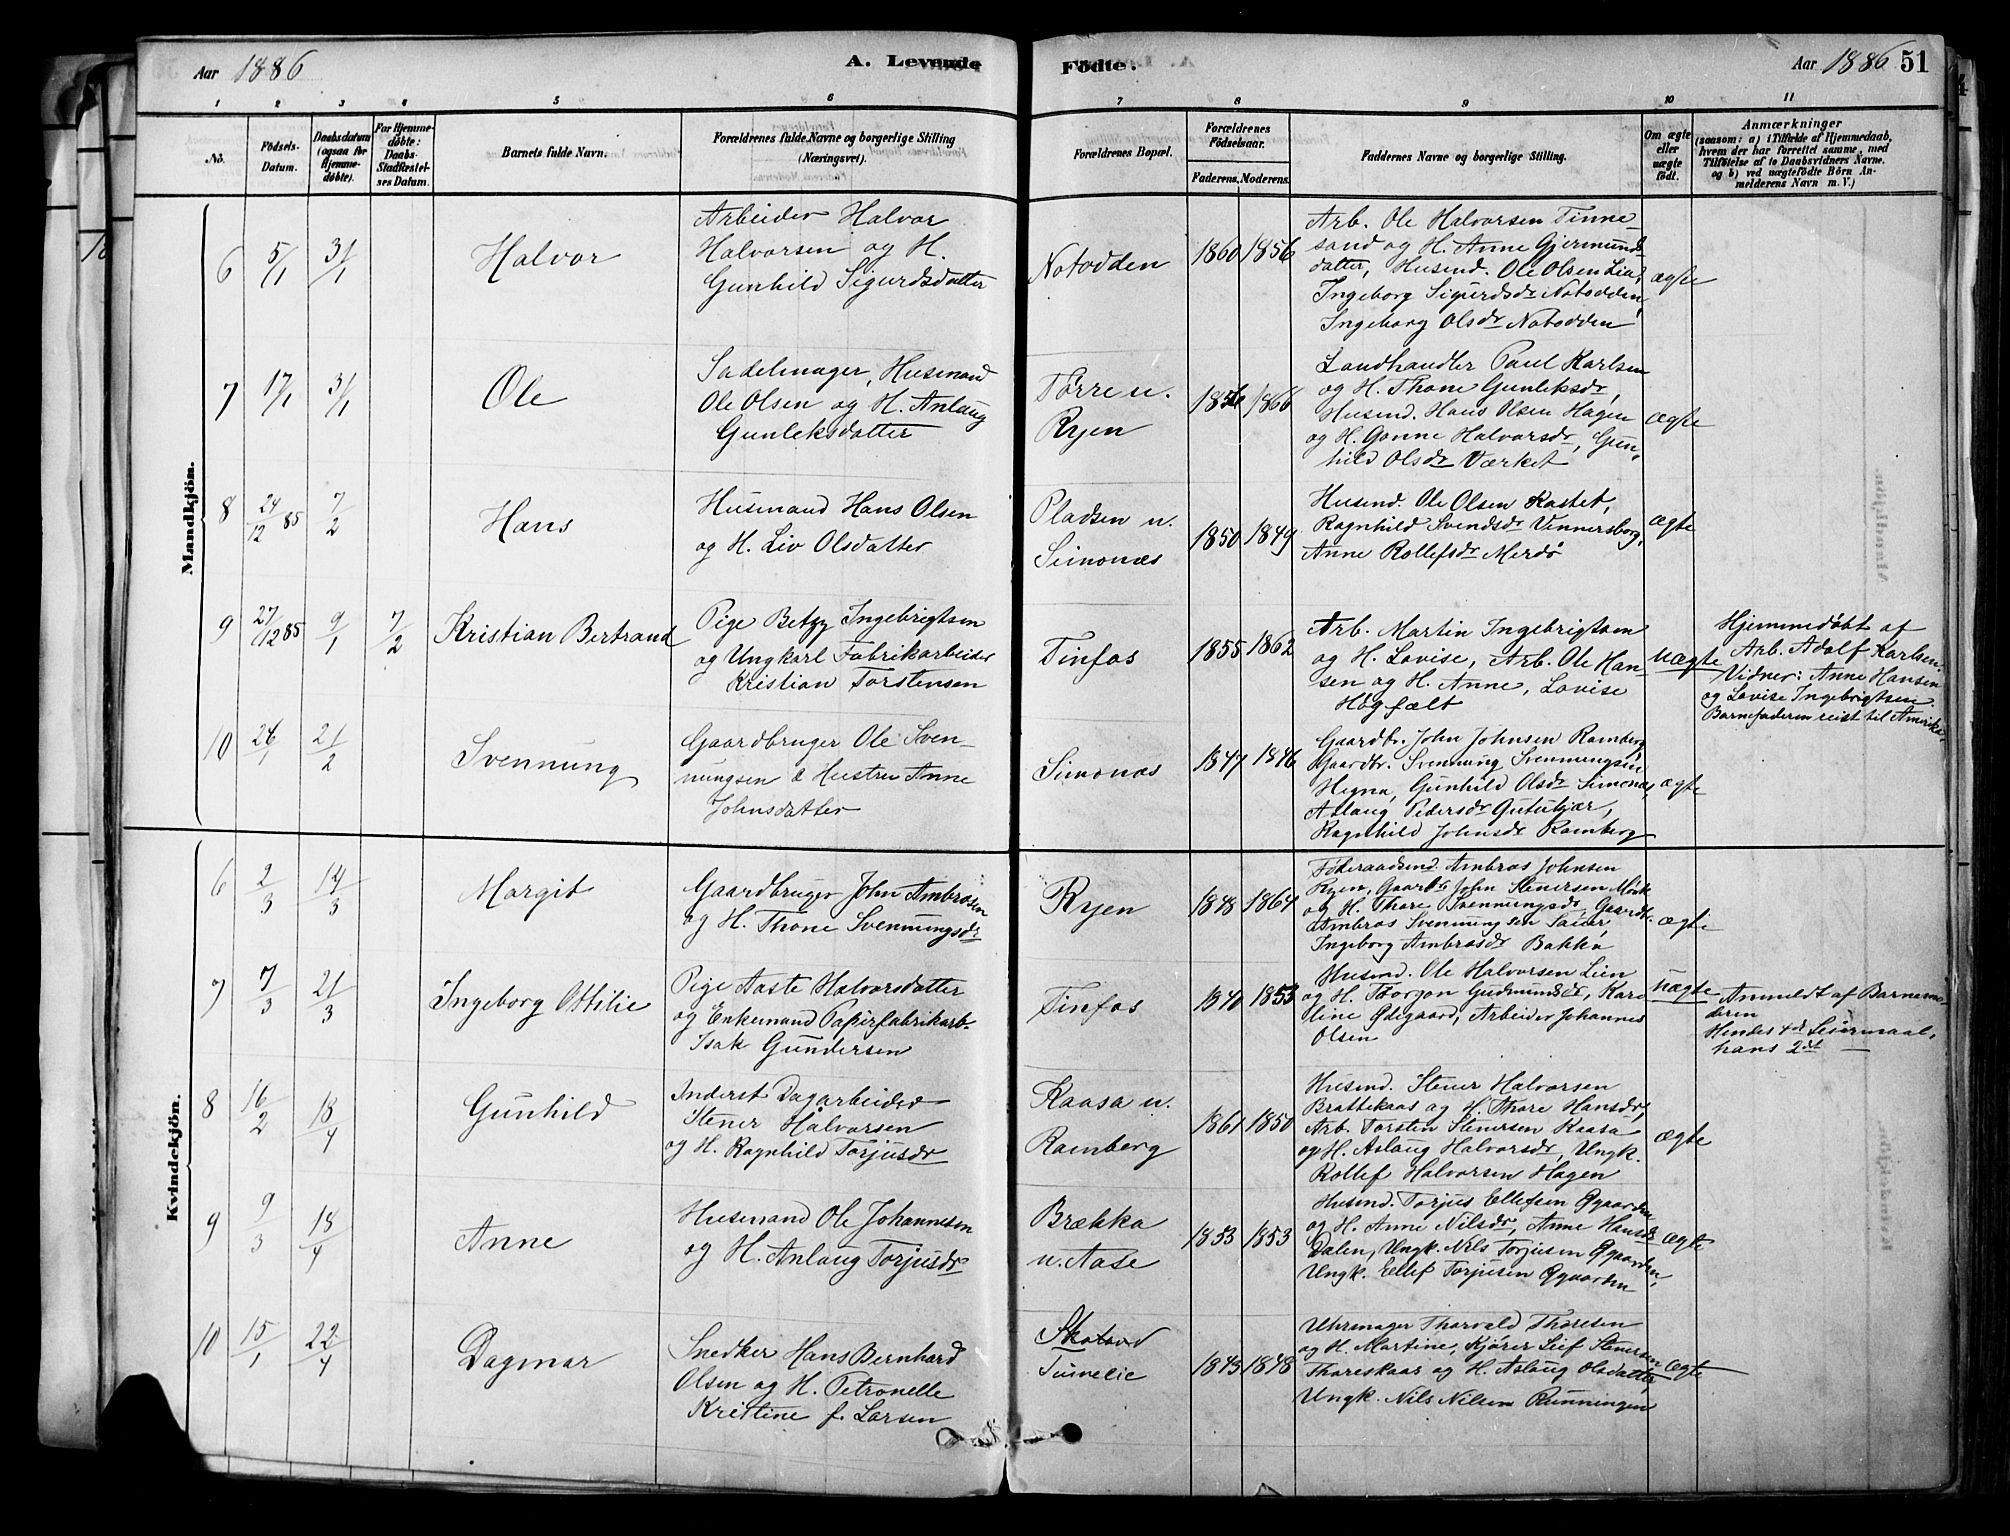 Aar 1886
A. Levende
Födte.
Aar 1886
51
1 2 3 4 5 6 7 8 9 10 11
No.
Födsels-
Datum.
Daabsdatum
(ogsaa for
Hjemme-
döbte).
For Hjemme-
döbte:
Daabs-
Stadfæstel-
ses Datum.
Barnets fulde Navn.
Forældrenes fulde Navne og borgerlige Stilling
(Næringsvei).
Forældrenes Bopæl.
Forældrenes
Födselsaar.
Faderens. Moderens.
Faddernes Navne og borgerlige Stilling.
Om ægte
eller
uægte
födt.
Anmærkninger
(saasom: a) i Tilfælde af Hjemmedaab,
hvem der har forrettet samme, med
Tilföielse af to Daabsvidners Navne.
og b) ved uægtefödte Börn An-
melderens Navn m. V.)
Mandkjön.
6 5/1 31/1 Halvor
Arbeider Halvor
Halvorsen og H.
Gunhild Sigurdsdatter
Notodden
1860 1856
Arb. Ole Halvorsen Tinne-
sand og H. Anne Gjermunds
datter, Husmd. Ole Olsen Lia,
Ingeborg Sigurdsdr Notodden,
Ingeborg Olsdr Notodden
ægte
7 17/1 31/1 Ole
Sadelmager, Husmand
Ole Olsen og H. Anlaug
Gunleksdatter
Tørre u.
Ryen
1856 1866
Landhandler Paul Karlsen
og H. Thone Gunleksdr,
Husmd. Hans Olsen Hagen
og H. Gonne Halvorsdr, Gun-
hild Olsdr Værket
ægte
8 24/12 85 7/2 Hans
Husmand Hans Olsen
og H. Liv Olsdatter
Pladsen u.
Simonæs
1850 1849
Husmd. Ole Olsen Kastet,
Ragnhild Svendsdr Vinnersborg,
Anne Rollefsdr Merdø
ægte
9 27/12 85 9/1 7/2 Kristian Bertrand
Pige Betzy Ingebrigtsen
og Ungkarl Fabrikarbeider
Kristian Torstensen
Tinfos
1855 1862
Arb. Martin Ingebrigtsen
og H. Lovise, Arb. Ole Han-
sen og H. Anne, Lovise
Høgfælt
uægte
Hjemmedøbt af
Arb. Adolf Karlsen.
Vidner: Anne Hansen
og Lovise Ingebrigtsen.
Barnefaderen reist til Amerika.
10 24/1 21/2 Svennung
Gaardbruger Ole Sven-
nungsen & Hustru Anne
Johnsdatter
Simonæs
1847 1846
Gaardbr. John Johnsen Ramberg,
Gaardbr. Svennung Svennungsen
Hegna, Gunhild Olsdr Simonæs,
Aslaug Pedersdr Gutukjær,
Ragnhild Johnsdr Ramberg
ægte
Kvindekjön.
6 2/3 14/3 Margit
Gaardbruger John Ambrosen
og H. Thone Svennungsdr
Ryen
1848 1864
Føderaadsmd. Ambros Johnsen
Ryen, Gaardb John Stenersen Mørk
og H. Thore Svennungsdr, Gaardb.
Ambros Svennungsen Sauar,
Ingeborg Ambrosdr Bakka
ægte
7 7/3 21/3 Ingeborg Ottilie
Pige Aaste Halvorsdatter
og Enkemand Papirfabrikarb.
Isak Gundersen
Tinfos
1840 1853
Husmd. Ole Halvorsen Lien
og H. Torjon Gudmundsdr, Karo
line Ødegaard, Arbeider Johannes
Olsen
uægte
Anmeldt af Barnemo-
deren
Hendes 4de Leiermaal,
hans 2det —
8 16/2 18/4 Gunhild
Inderst Dagarbeider
Stener Halvorsen
og H. Ragnhild Torjusdr
Kaasa u.
Ramberg
1861 1850
Husmd. Stener Halvorsen
Brattekaas og H. Thore Hansdr,
Arb. Torsten Stenersen Kaasa
og H. Aslaug Halvorsdr, Ungk.
Rollef Halvorsen Hagen
ægte
9 9/3 18/4 Anne
Husmand Ole Johannesen
og H. Anlaug Torjusdr
Brækka
u. Aase
1853 1853
Husmd. Torjus Ellefsen Øgaarden
og H. Anne Nilsdr, Anne Hansdr
Dalen, Ungk. Nils Torjusen Øgaarden,
Ungk. Ellef Torjusen Øgaarden
ægte
10 15/1 22/4 Dagmar
Snedker Hans Bernhard
Olsen og H. Petronelle
Kristine f. Larsen
Tumelie
1843 1848
Uhrmager Thorvald Thoresen
og H. Martine, Kjører Leif Stenersen
Thoreskaas og H. Aslaug Olsdatter,
Ungk. Nils Nilsen Rünningen
ægte